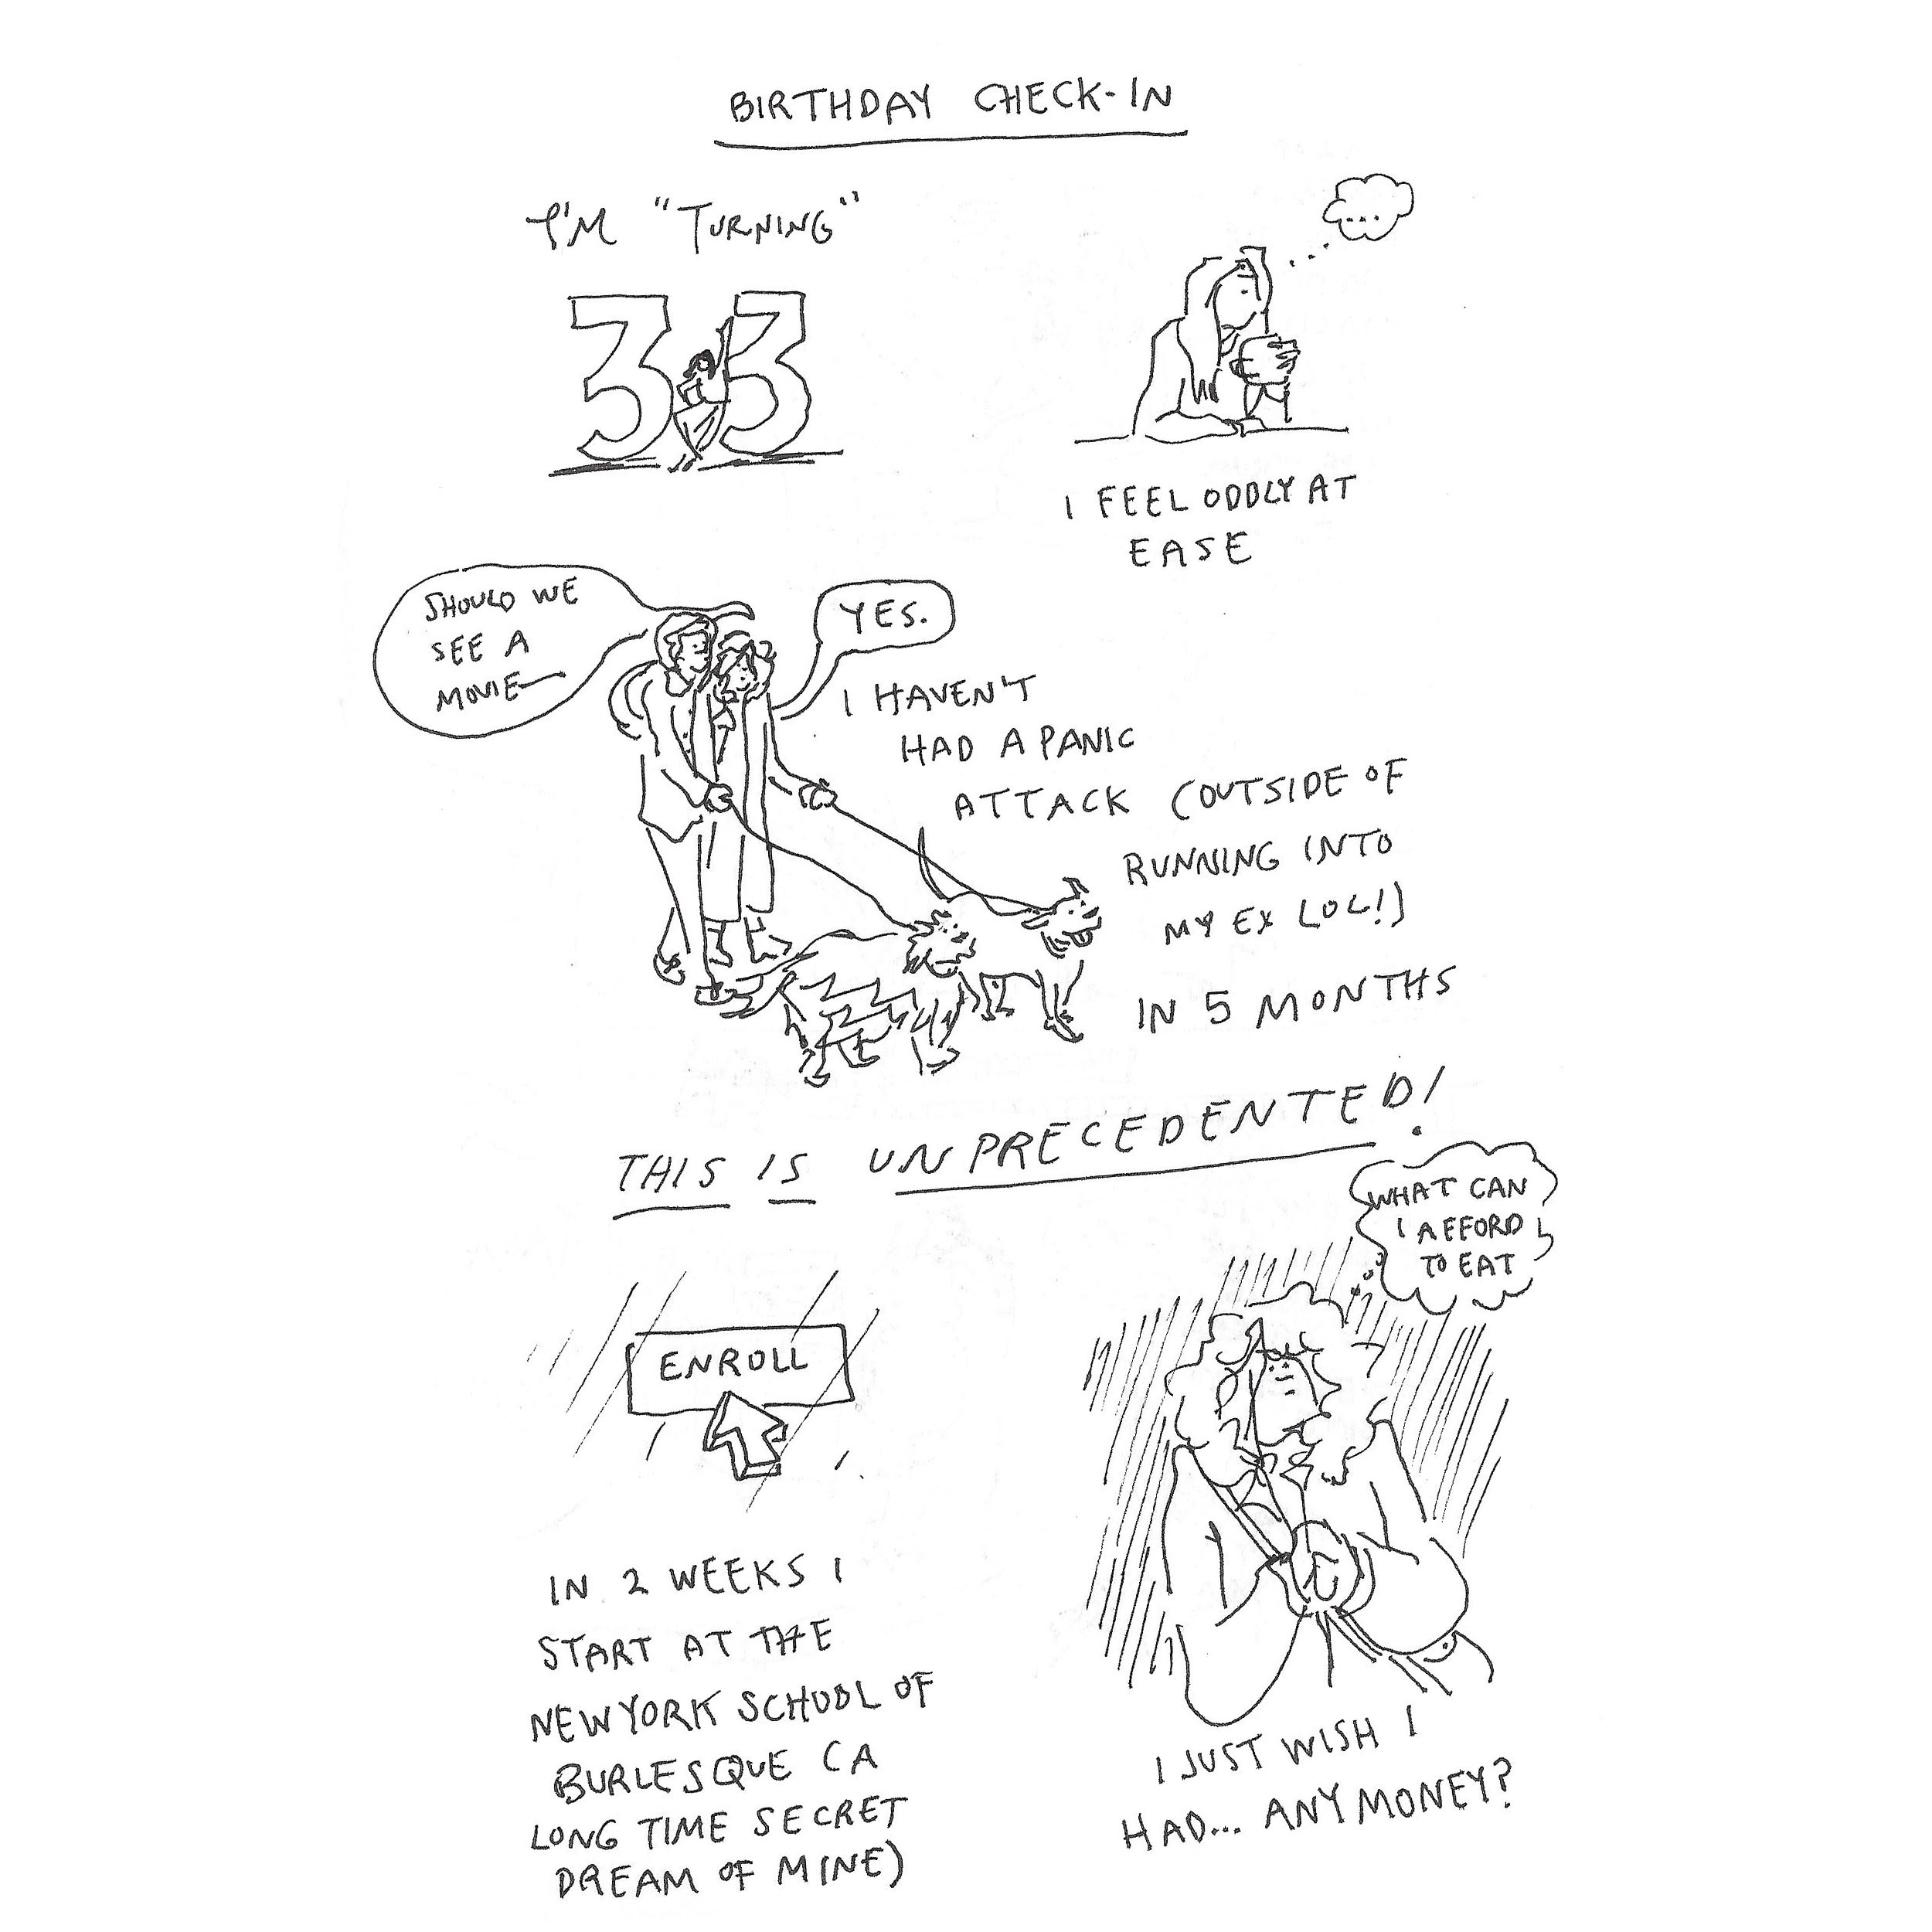 BIRTHDAY CHECK-IN
I'M "TURNING"
33
...
I FEEL ODDLY AT
EASE
SHOULD WE
SEE A
MOVIE—
YES.
I HAVEN'T
HAD A PANIC
ATTACK (OUTSIDE OF
RUNNING INTO
MY EX LOL!)
IN 5 MONTHS
THIS IS UNPRECEDENTED!
ENROLL
IN 2 WEEKS I
START AT THE
NEW YORK SCHOOL OF
BURLESQUE (A
LONG TIME SECRET
DREAM OF MINE)
WHAT CAN
I AFFORD
TO EAT
I JUST WISH I
HAD... ANY MONEY?